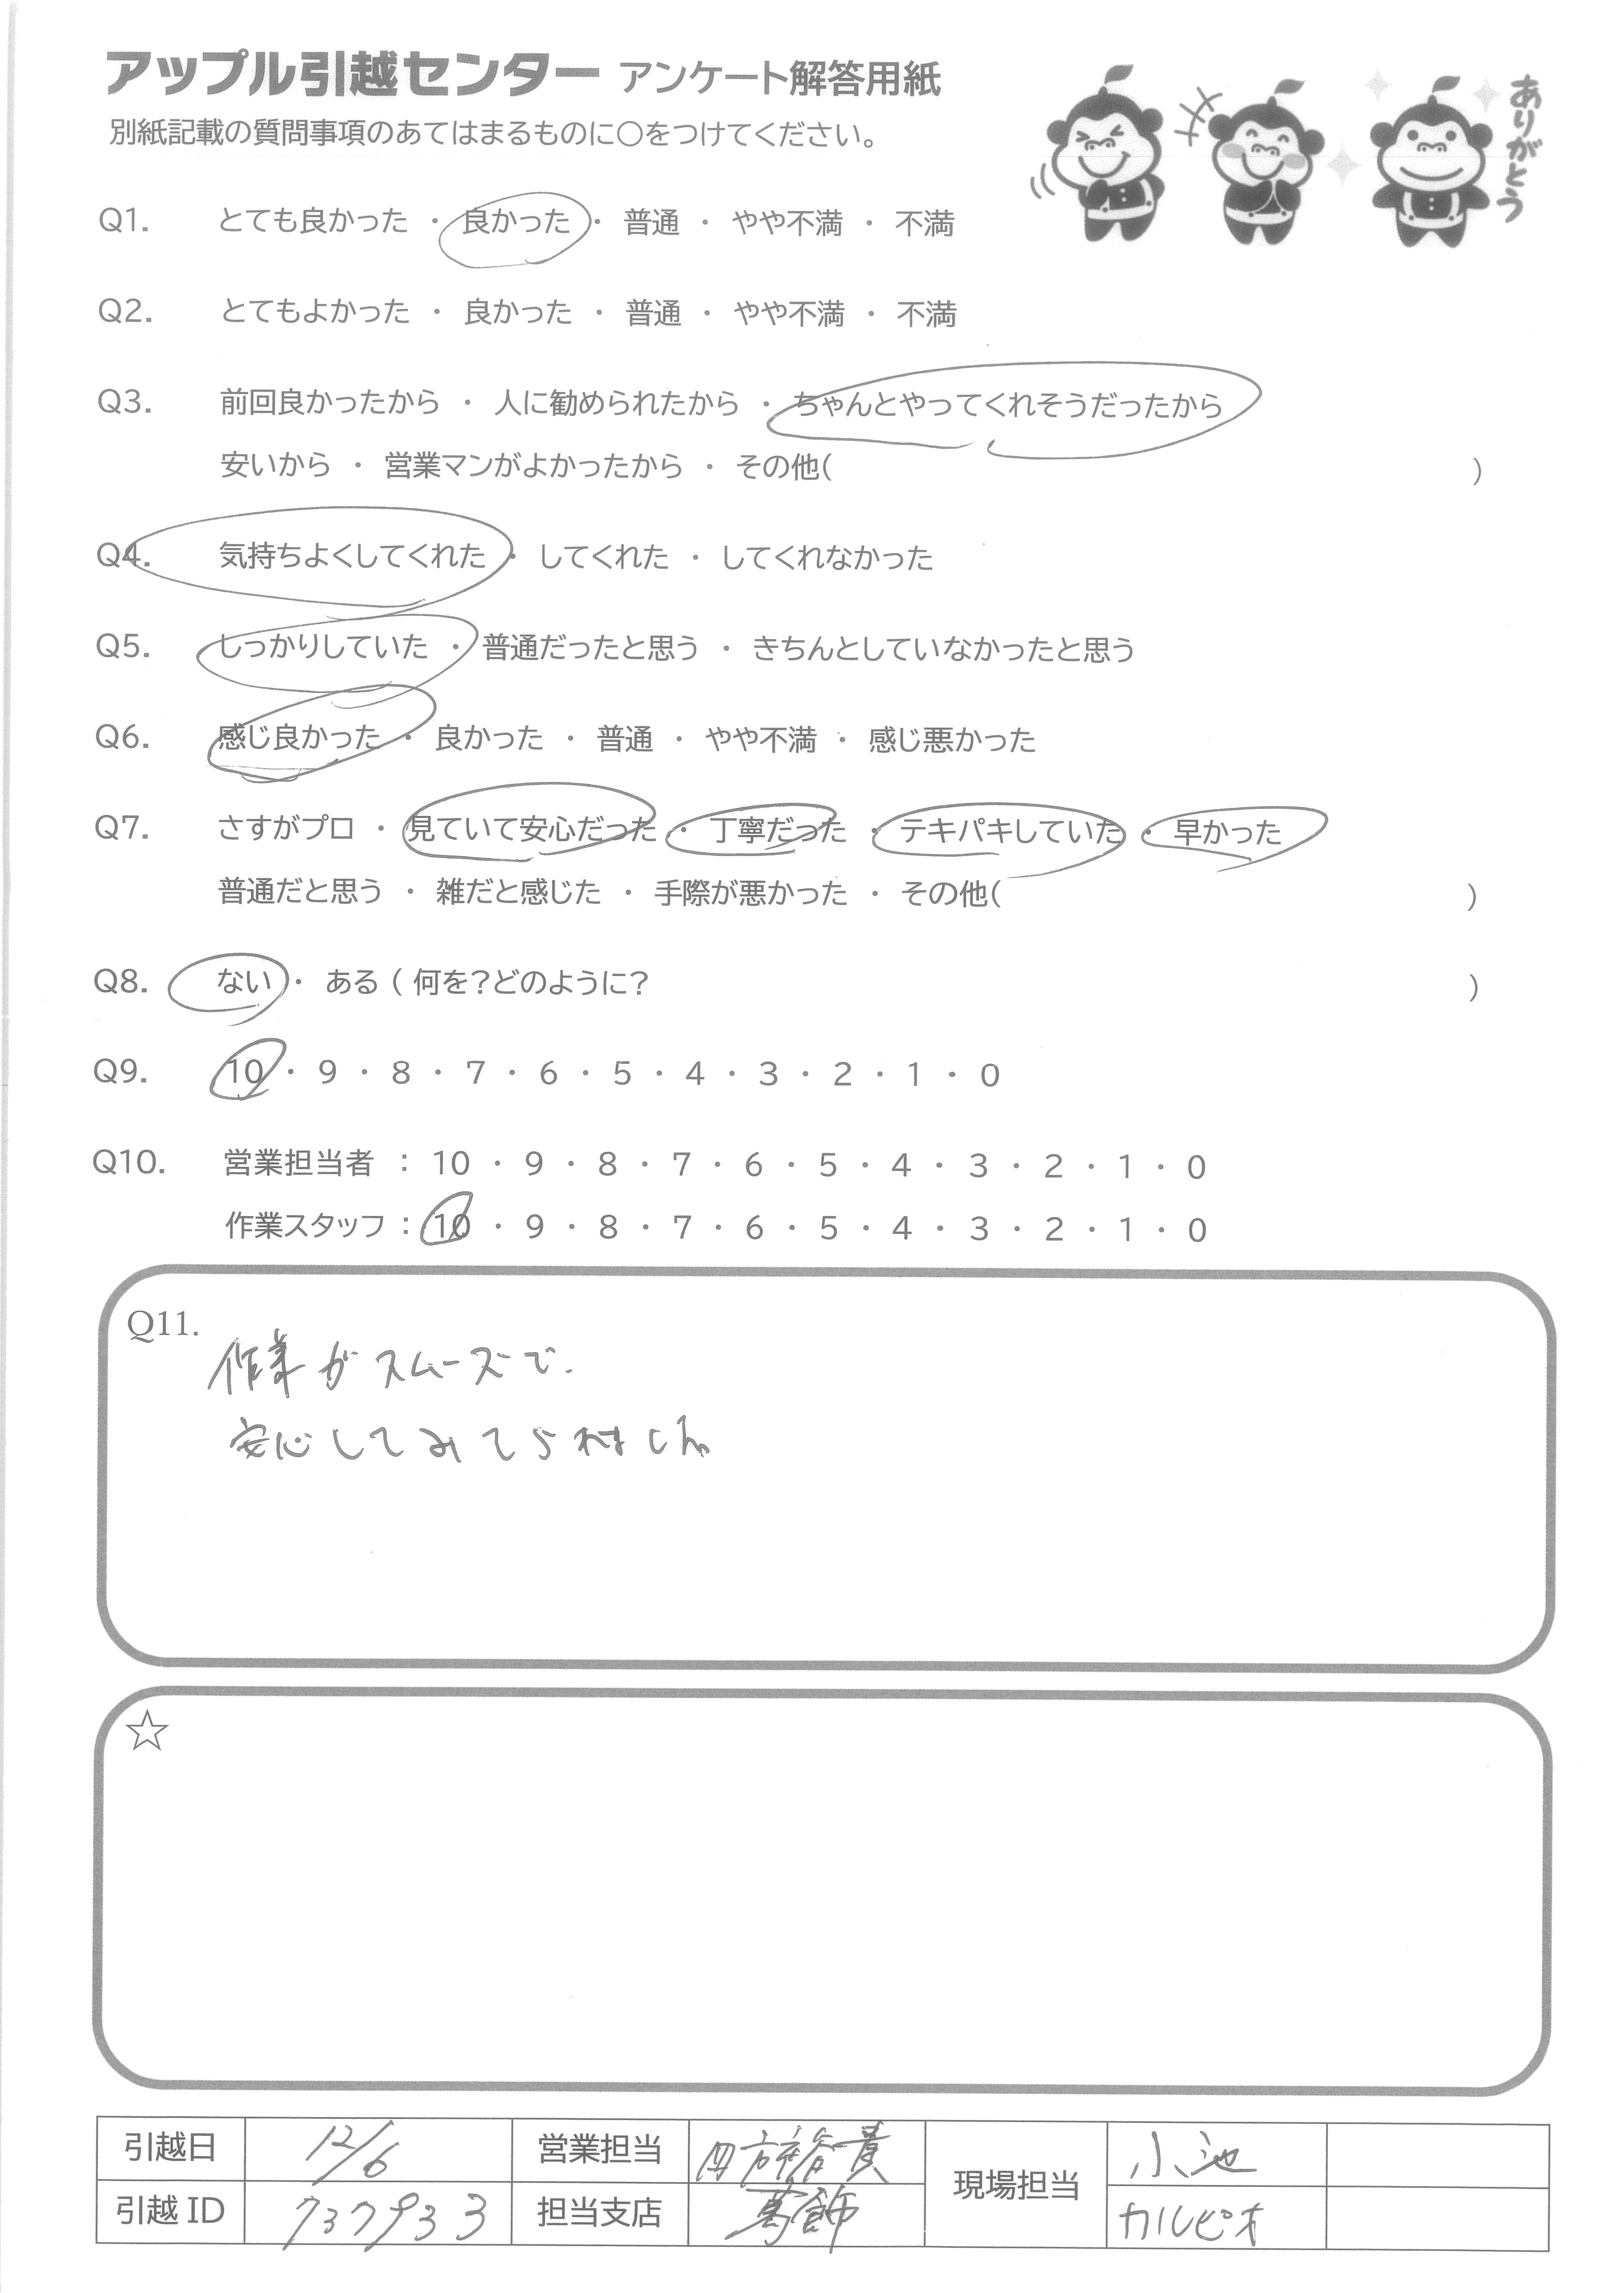 アップル引越センター アンケート解答用紙
ありがとう
別紙記載の質問事項のあてはまるものに○をつけてください。
Q1. とても良かった ・ 良かった ・ 普通 ・ やや不満 ・ 不満
Q2. とてもよかった ・ 良かった ・ 普通 ・ やや不満 ・ 不満
Q3. 前回良かったから ・ 人に勧められたから ・ ちゃんとやってくれそうだったから
安いから ・ 営業マンがよかったから ・ その他( )
Q4. 気持ちよくしてくれた ・ してくれた ・ してくれなかった
Q5. しっかりしていた ・ 普通だったと思う ・ きちんとしていなかったと思う
Q6. 感じ良かった ・ 良かった ・ 普通 ・ やや不満 ・ 感じ悪かった
Q7. さすがプロ ・ 見ていて安心だった ・ 丁寧だった ・ テキパキしていた ・ 早かった
普通だと思う ・ 雑だと感じた ・ 手際が悪かった ・ その他( )
Q8. ない ・ ある ( 何を?どのように? )
Q9. 10 ・ 9 ・ 8 ・ 7 ・ 6 ・ 5 ・ 4 ・ 3 ・ 2 ・ 1 ・ 0
Q10. 営業担当者 : 10 ・ 9 ・ 8 ・ 7 ・ 6 ・ 5 ・ 4 ・ 3 ・ 2 ・ 1 ・ 0
作業スタッフ : 10 ・ 9 ・ 8 ・ 7 ・ 6 ・ 5 ・ 4 ・ 3 ・ 2 ・ 1 ・ 0
Q11.
作業がスムーズで、
安心してみてられました。
☆
引越日 12/6 営業担当 現場担当 小池
引越ID 737933 担当支店 葛飾 カルピオ